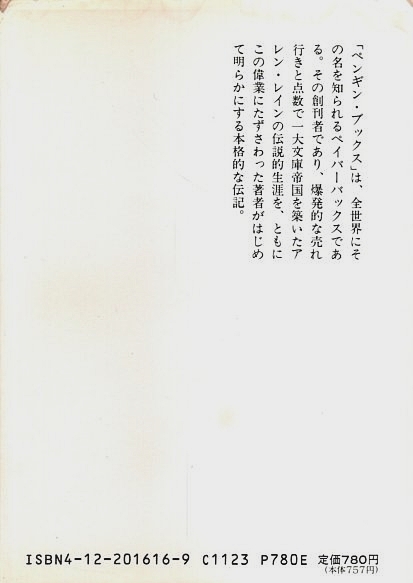 「ペンギン・ブックス」は、全世界にそ
の名を知られるペイパーバックスであ
る。その創刊者であり、爆発的な売れ
行きと点数で一大文庫帝国を築いたア
レン・レインの伝説的生涯を、ともに
この偉業にたずさわった著者がはじめ
て明らかにする本格的な伝記。
ISBN4-12-201616-9 C1123 P780E 定価780円
(本体757円)